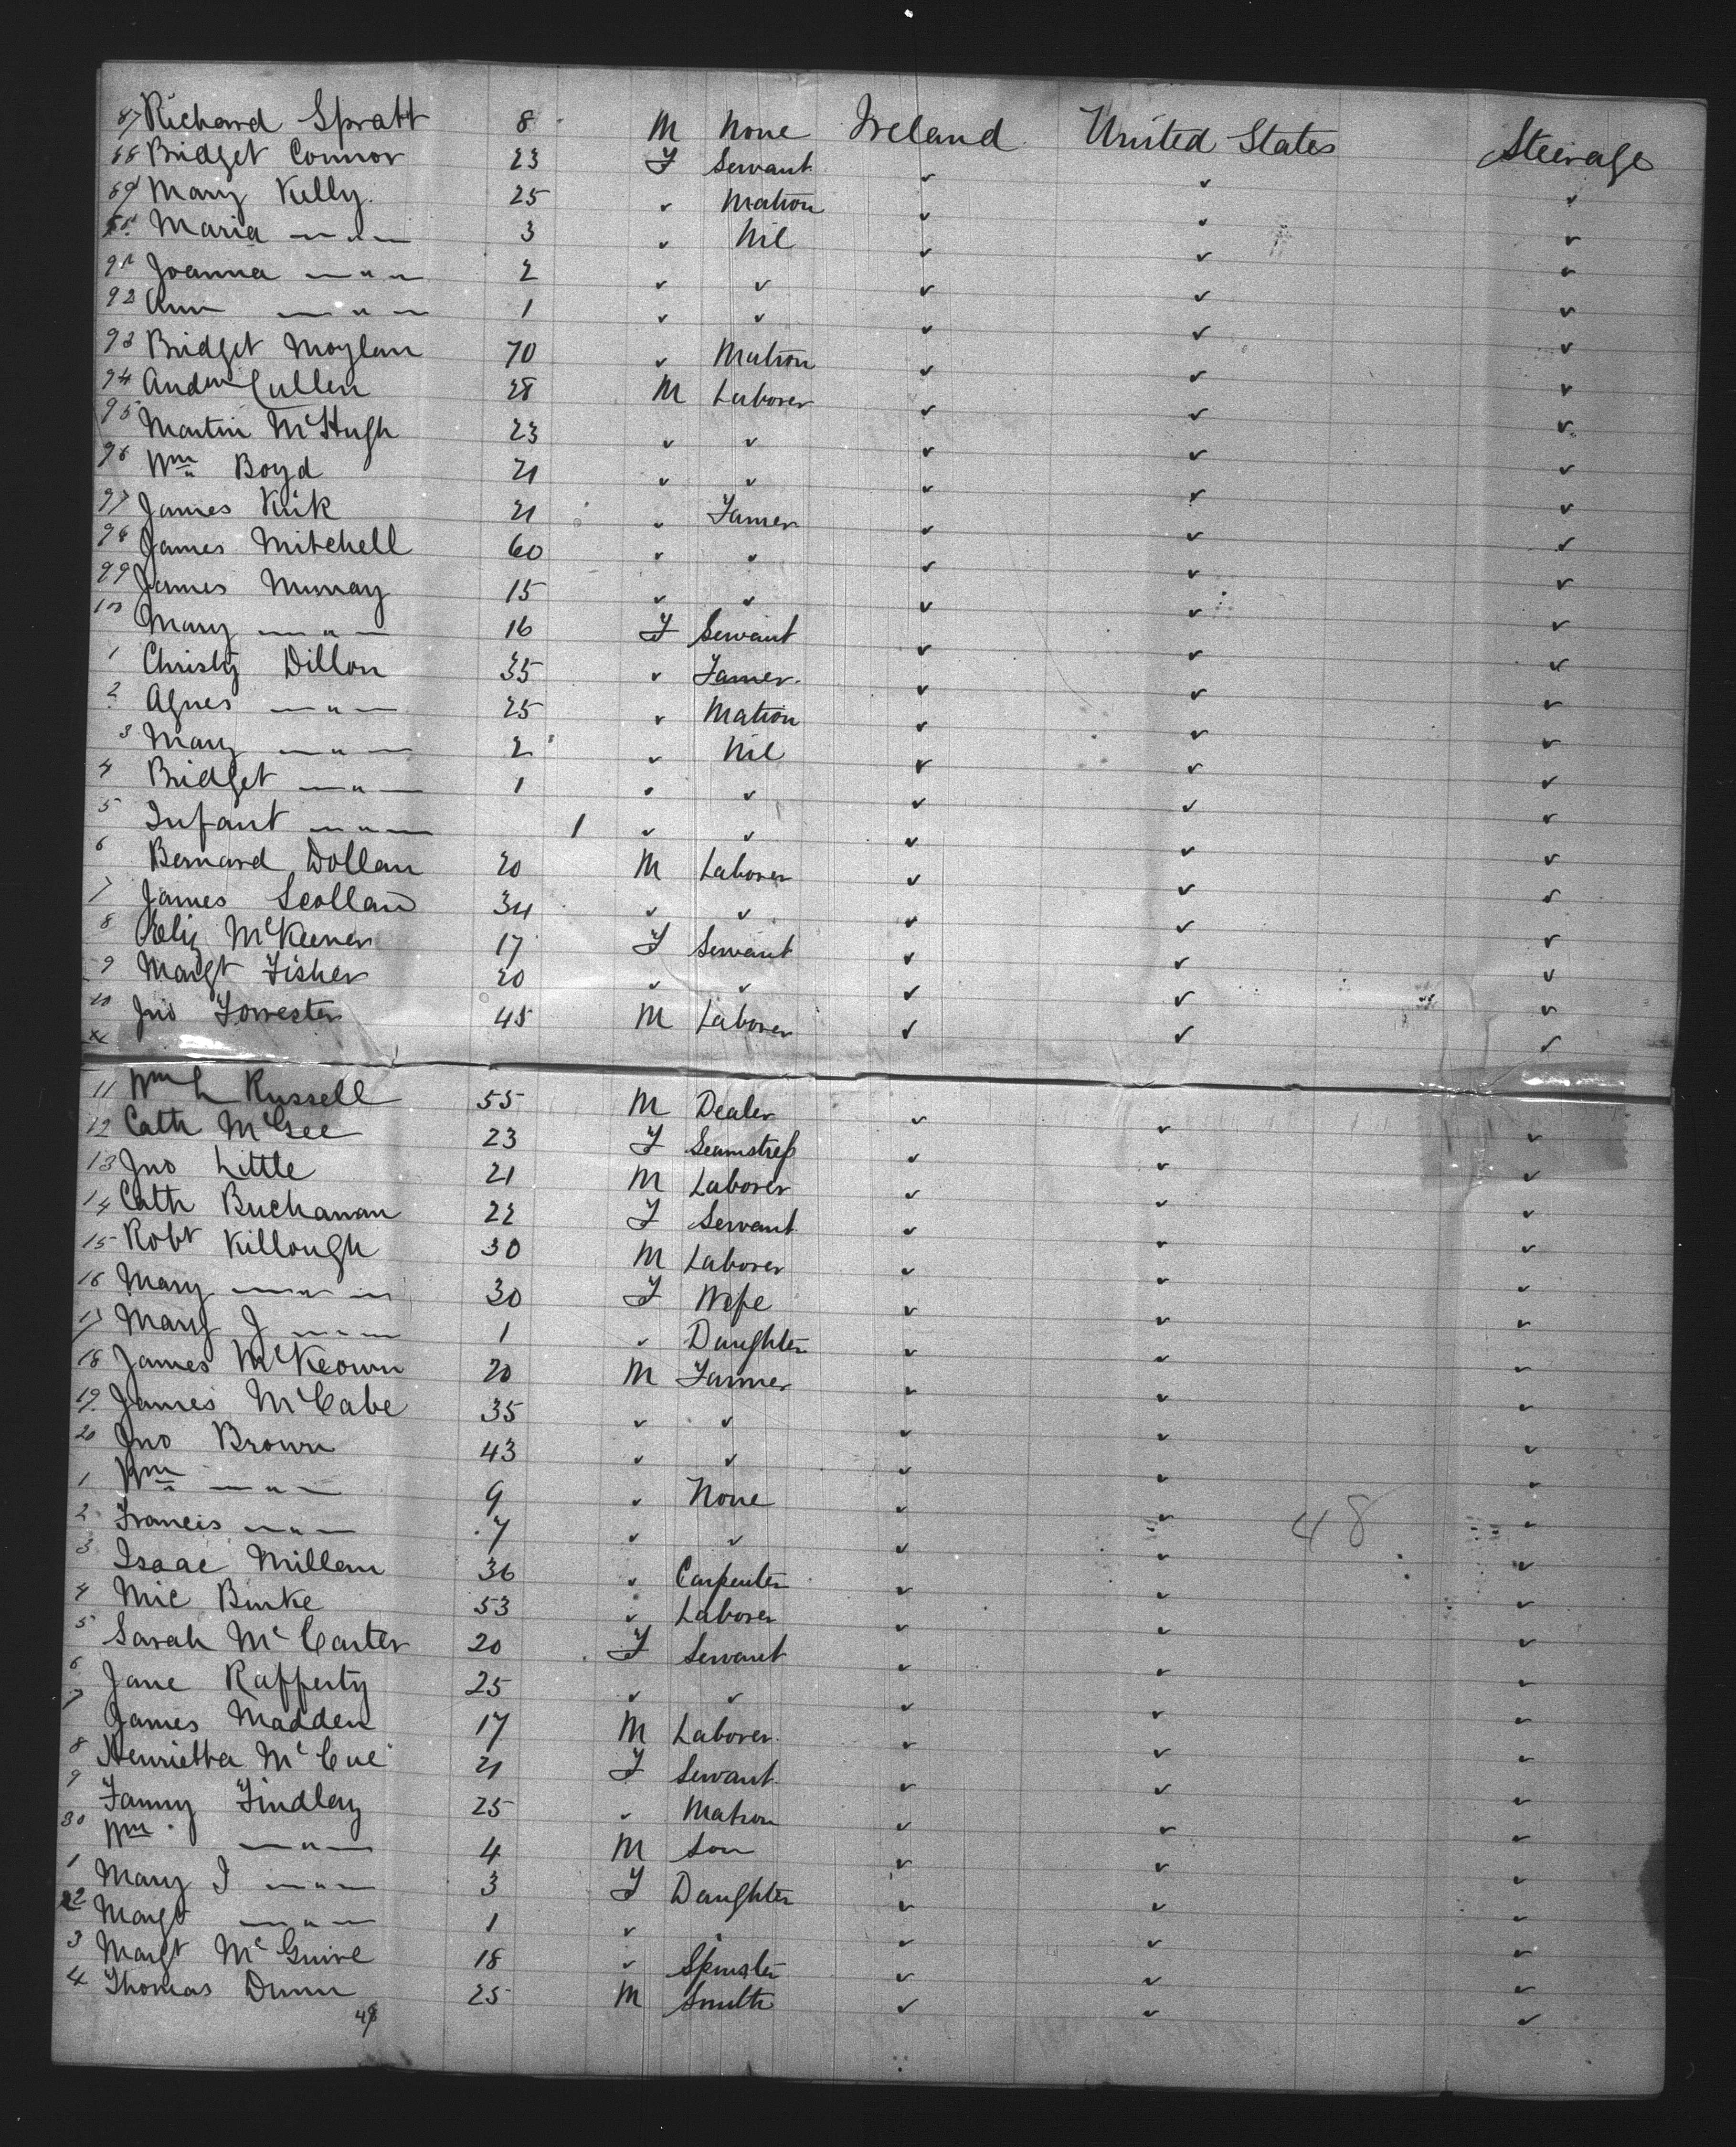 87 Richard Spratt 8 M None Ireland United States Steerage
88 Bridget Connor 23 F Servant ✓ ✓ ✓
89 Mary Kelly 25 ✓ Matron ✓ ✓ ✓
Maria — " — 3 ✓ Nil ✓ ✓ ✓
91 Joanna — " — 2 ✓ ✓ ✓ ✓ ✓
92 Ann — " — 1 ✓ ✓ ✓ ✓ ✓
93 Bridget Moylan 70 ✓ Matron ✓ ✓ ✓
94 Andw Cullen 28 M Laborer ✓ ✓ ✓
95 Martin McHugh 23 ✓ ✓ ✓ ✓ ✓
96 Wm Boyd 21 ✓ ✓ ✓ ✓ ✓
97 James Kirk 21 ✓ Farmer ✓ ✓ ✓
98 James Mitchell 60 ✓ ✓ ✓ ✓ ✓
99 James Murray 15 ✓ ✓ ✓ ✓ ✓
100 Mary — " — 16 F Servant ✓ ✓ ✓
1 Christy Dillon 35 ✓ Farmer ✓ ✓ ✓
2 Agnes — " — 25 ✓ Matron ✓ ✓ ✓
3 Mary — " — 2 ✓ Nil ✓ ✓ ✓
4 Bridget — " — 1 ✓ ✓ ✓ ✓ ✓
5 Infant — " — 1 ✓ ✓ ✓ ✓ ✓
6 Bernard Dollan 20 M Laborer ✓ ✓ ✓
7 James Scollan 34 ✓ ✓ ✓ ✓ ✓
8 Eliz McKeever 17 F Servant ✓ ✓ ✓
9 Margt Fisher 20 ✓ ✓ ✓ ✓ ✓
10 Jno Forrester 45 M Laborer ✓ ✓ ✓
11 Wm L Russell 55 M Dealer ✓ ✓ ✓
12 Cath McGee 23 F Seamstress ✓ ✓ ✓
13 Jno Little 21 M Laborer ✓ ✓ ✓
14 Cath Buchanan 22 F Servant ✓ ✓ ✓
15 Robt Killough 30 M Laborer ✓ ✓ ✓
16 Mary — " — 30 F Wife ✓ ✓ ✓
17 Mary J — " — 1 ✓ Daughter ✓ ✓ ✓
18 James McKeown 20 M Farmer ✓ ✓ ✓
19 James McCabe 35 ✓ ✓ ✓ ✓ ✓
20 Jno Brown 43 ✓ ✓ ✓ ✓ ✓
1 Wm — " — 9 ✓ None ✓ ✓ ✓
2 Francis — " — 7 ✓ ✓ ✓ ✓ ✓
48
3 Isaac Millen 36 ✓ Carpenter ✓ ✓ ✓
4 Mic Burke 53 ✓ Laborer ✓ ✓ ✓
5 Sarah McCarter 20 F Servant ✓ ✓ ✓
6 Jane Rafferty 25 ✓ ✓ ✓ ✓ ✓
7 James Madden 17 M Laborer ✓ ✓ ✓
8 Henrietta McCue 21 F Servant ✓ ✓ ✓
9 Fanny Findlay 25 ✓ Matron ✓ ✓ ✓
30 Wm — " — 4 M Son ✓ ✓ ✓
1 Mary J — " — 3 F Daughter ✓ ✓ ✓
2 Margt — " — 1 ✓ " ✓ ✓ ✓
3 Margt McGuire 18 ✓ Spinster ✓ ✓ ✓
4 Thomas Dunn 25 M Smith ✓ ✓ ✓
48